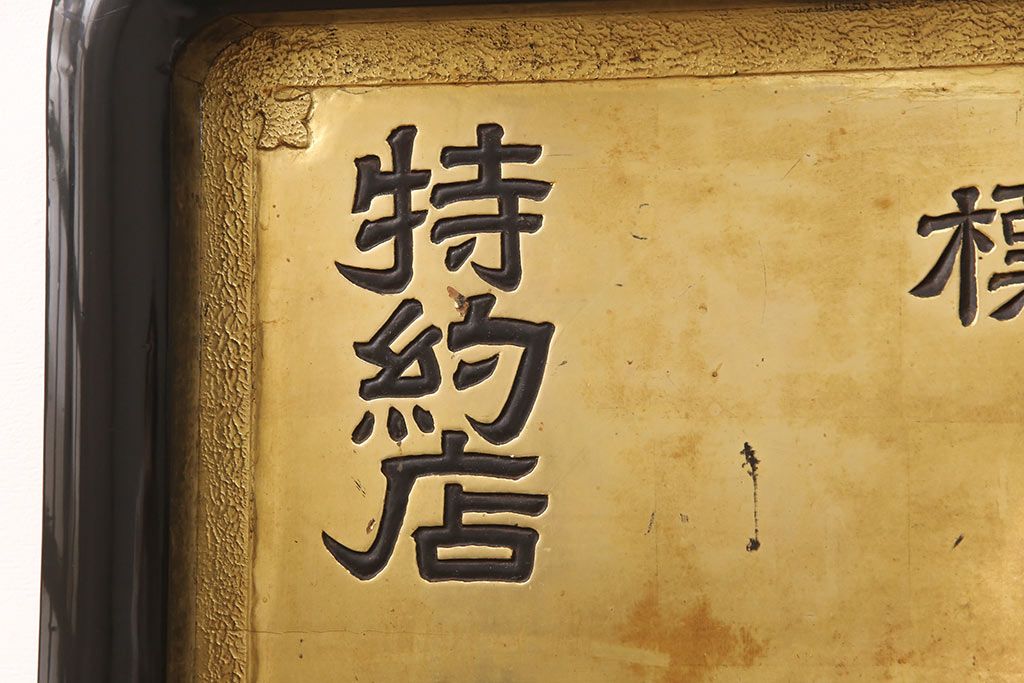 特約店